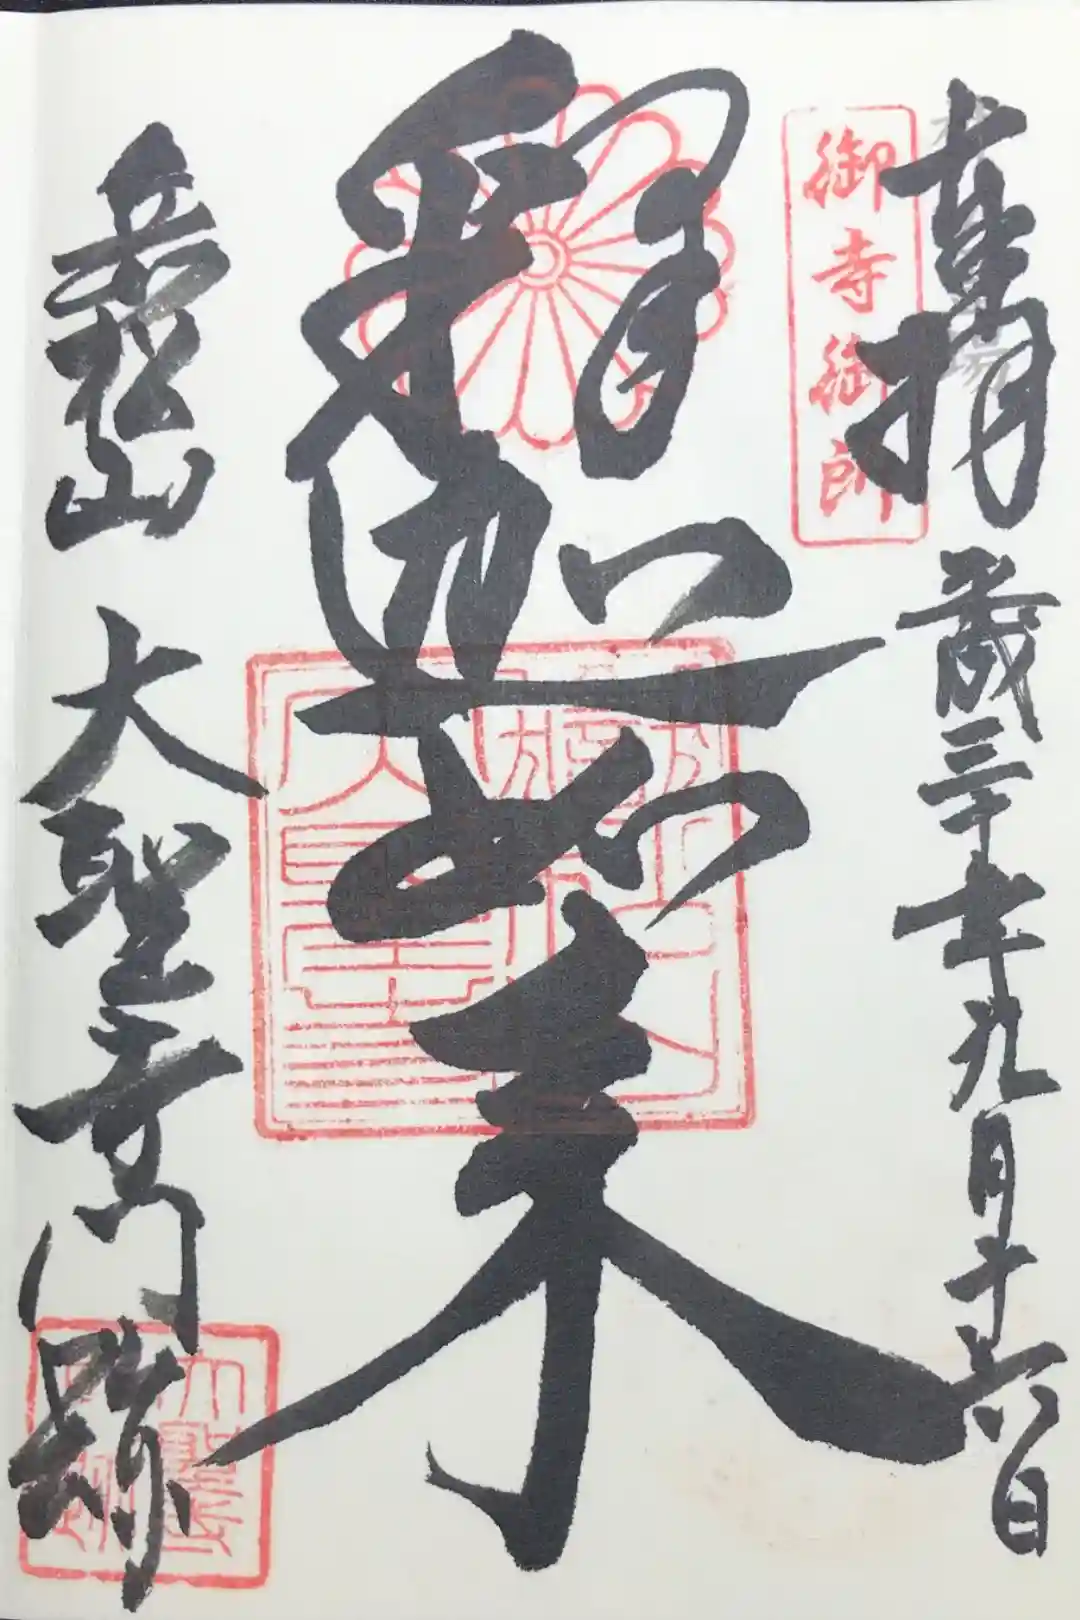 奉拝
平成三十年九月十六日
御寺御所
釋迦如来
岳松山
大聖寺門跡